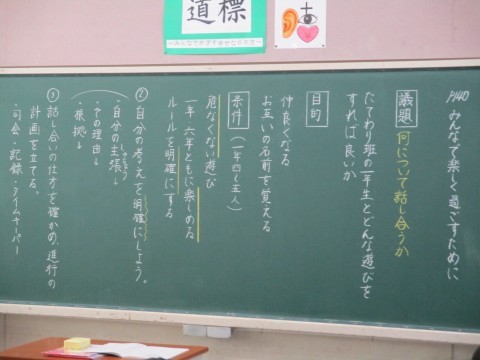 道標
P140 みんなで楽しく過ごすために
議題 何について話し合うか
たてわり班の一年生とどんな遊びを
すれば良いか
目的
仲良くなる
お互いの名前を覚える
条件 (一年4〜5人)
危なくない遊び
一年 六年ともに楽しめる
ルールを明確にする
② 自分の考えを明確にしよう。
・自分の主張↓
・その理由↓
・根拠↓
③ 話し合いの仕方を確かめ、進行の
計画を立てる。
・司会・記録・タイムキーパー